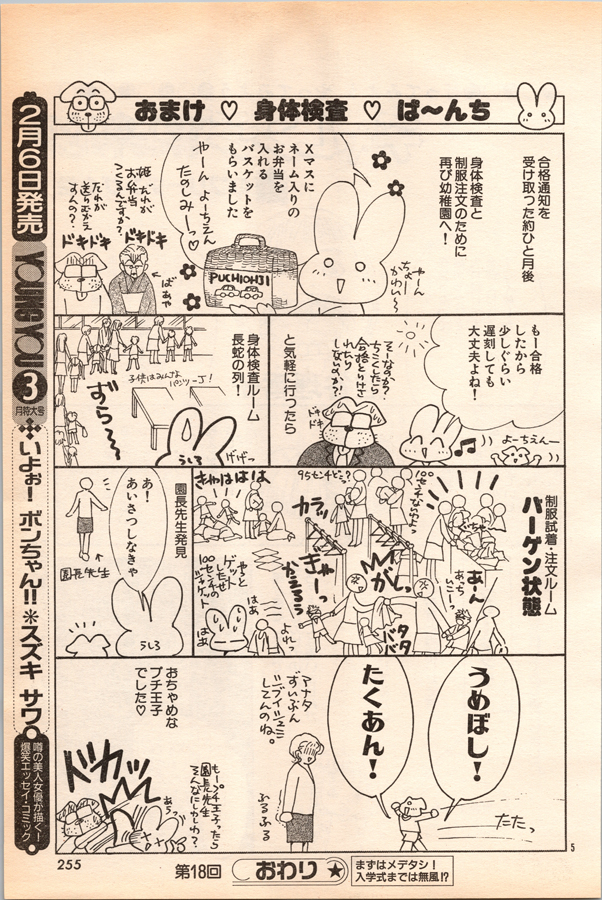 おまけ ♡ 身体検査 ♡ ぱ〜んち
合格通知を
受け取った約ひと月後
身体検査と
制服注文のために
再び幼稚園へ!
Xマスに
ネーム入りの
お弁当を
入れる
バスケットを
もらいました
やーん よーちえん
たのしみーっ♡
PUCHIOHJI
やーん
ちょー
かわいー
ばあや
姫、だれが
お弁当
つくるんですか?
ドキドキ
だれが
送りむかえ
すんの?
ドキドキ
もー合格
したから
少しぐらい
遅刻しても
大丈夫よね!
よーちえんー
そーなのか?
ちこくしたら
合格とりけさ
れたり
しないのか?
ドキドキ
と気軽に行ったら
身体検査ルーム
長蛇の列!
子供はみんな
パンツ一丁!
ずら〜〜
げげっ
うしろ
制服試着・注文ルーム
バーゲン状態
100センチないわよっ
95センチどこ?
きゃはははは
カラッ
ぎゃーっ
かえるう
がしっ
あーん
あっち
いこーっ
バタバタ
よれっ
やっと
ゲット
したぜ
100センチの
ジャケット
はあ
はあ
園長先生発見
あ!
あいさつしなきゃ
園長先生
うしろ
うめぼし!
たくあん!
たたっ
アナタ
ずいぶん
シブイシュミ
してんのね。
ぷるぷる
おちゃめな
プチ王子
でした♡
もープチ王子ったら
園長先生
そんなにおかしわ?
あらっ
ドカッ
5
255
第18回
おわり★
まずはメデタシ!
入学式までは無風!?
2月6日発売
YOUNG YOU
3
月特大号
いよぉ! ポンちゃん!!*スズキ サワ
噂の美人女優が描く!
爆笑エッセイ・コミック